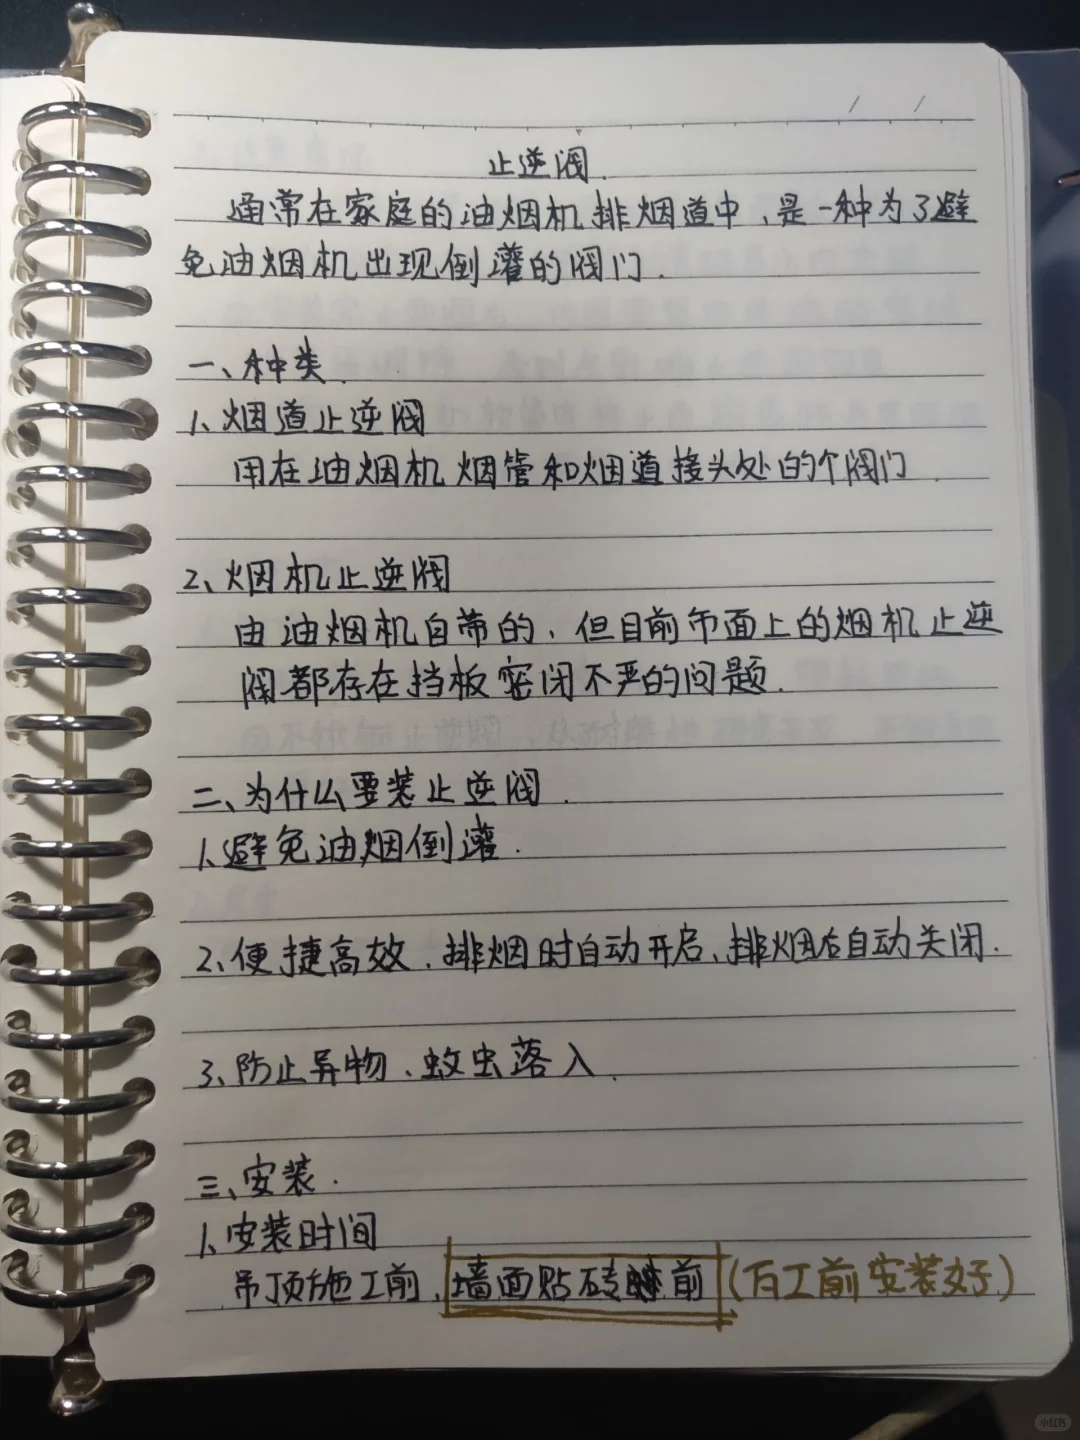 止逆阀.
通常在家庭的油烟机排烟道中、是一种为了避
免油烟机出现倒灌的阀门.
一、种类.
1、烟道止逆阀
用在油烟机烟管和烟道接头处的个阀门.
2、烟机止逆阀
由油烟机自带的、但目前市面上的烟机止逆
阀都存在挡板密闭不严的问题.
二、为什么要装止逆阀.
1、避免油烟倒灌.
2、便捷高效.排烟时自动开启、排烟后自动关闭.
3、防止异物、蚊虫落入.
三、安装.
1、安装时间
吊顶施工前、墙面贴砖前(瓦工前安装好)
小红书